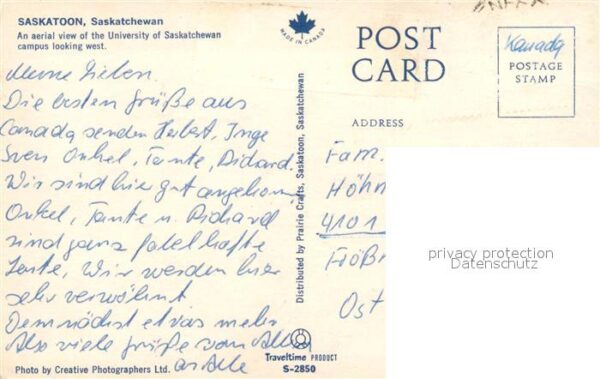 SASKATOON, Saskatchewan
An aerial view of the University of Saskatchewan
campus looking west.
Meine Lieben.
Die besten Grüße aus
Canada senden Herbert, Inge
Sven Onkel, Tante, Richard.
Wir sind hier gut angekom,
Onkel, Tante u. Richard
sind ganz fabelhafte
Leute, Wir werden hier
sehr verwöhnt
Demnächst etwas mehr
Also viele Grüße von Allen
an Alle
Photo by Creative Photographers Ltd.
MADE IN CANADA
Distributed by Prairie Crafts, Saskatoon, Saskatchewan
Traveltime PRODUCT
S-2850
POST
CARD
Kanada
POSTAGE
STAMP
ADDRESS
Fam.
Höhn
4101
Ost
privacy protection
Datenschutz